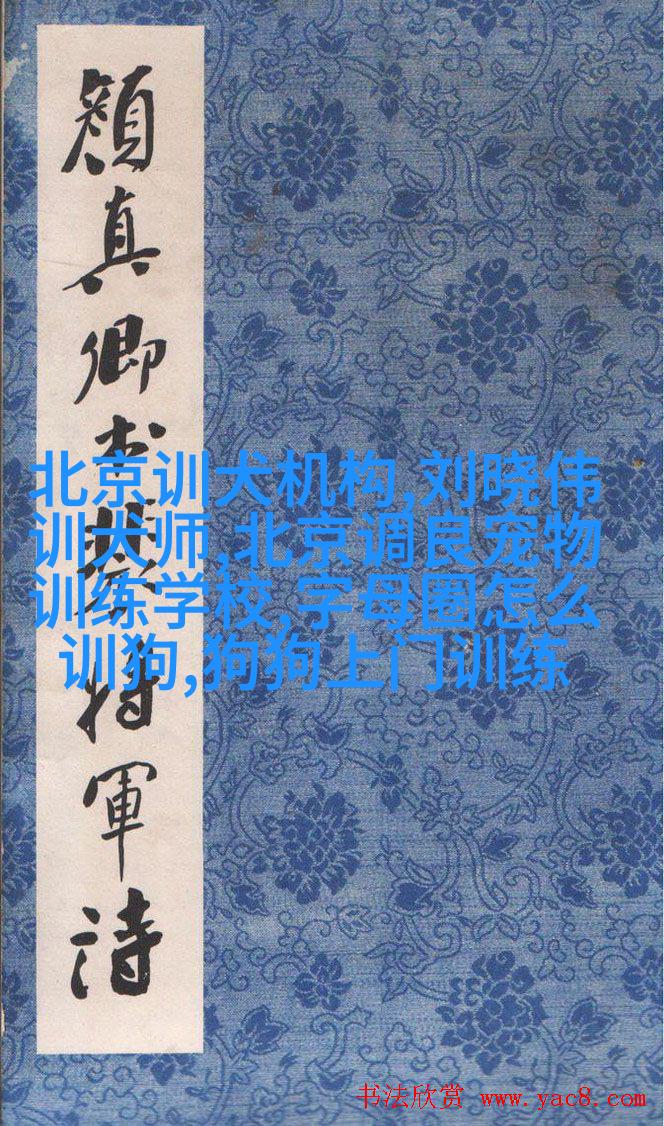 顔真卿书裴将軍诗
北京训犬机构,刘晓伟
训犬师,北京调良宠物
训练学校,字母圈怎么
训狗,狗狗上门训练
书法欣赏 www.yac8.com